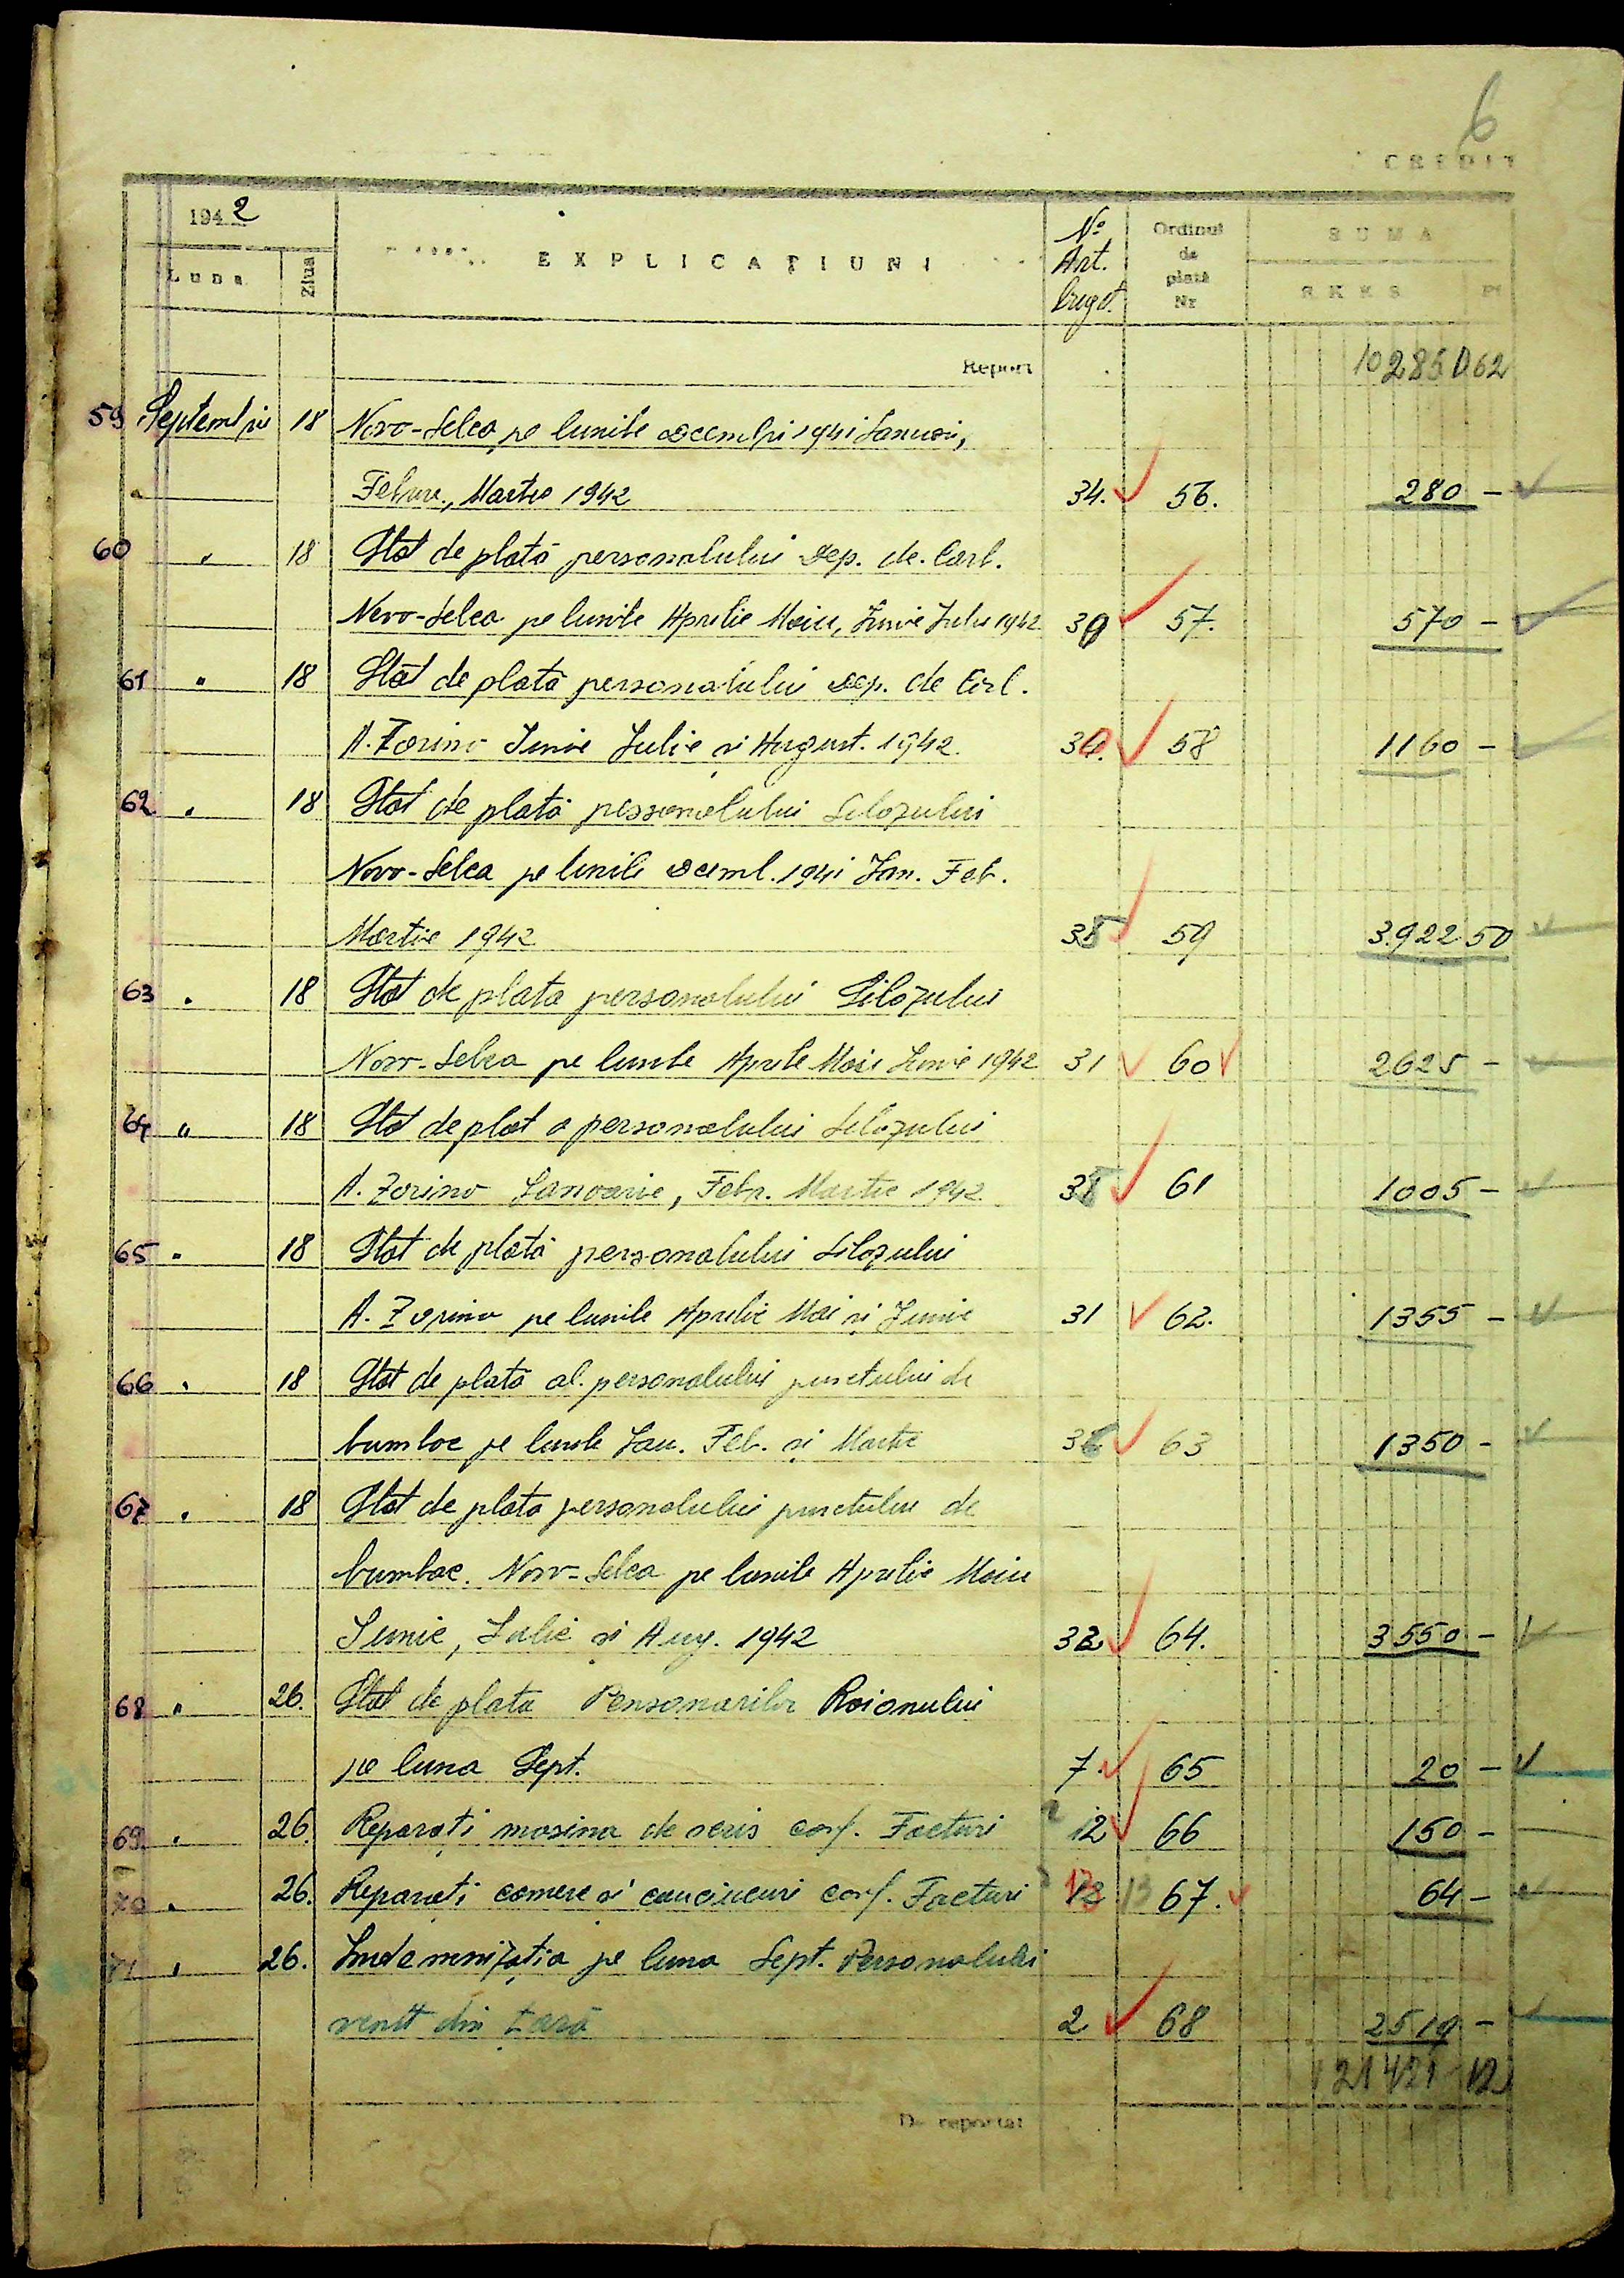 6
CREDIT
1942
Luna
Ziua
EXPLICAȚIUNI
No Art. buget.
Ordinul de plată Nr
SUMA
RKKS
Report
59 Septembrie 18 Novo-Selca pe lunile Decembri 1941 Januari,
Februr., Martie 1942 34. 56. 280 -
60 " 18 Stat de plată personalului Dep. de Carb.
Novo-Selca pe lunile Aprilie Maiu, Junie Julie 1942 30 57. 570 -
61 " 18 Stat de plată personalului Dep. de Carb.
A. Zorino Junie Julie și August. 1942. 30. 58 1160 -
62 " 18 Stat de plată personalului Silozului
Novo-Selca pe lunile Decemb. 1941 Jan. Feb.
Martie 1942 35 59 3.922 50
63 " 18 Stat de plata personalului Silozului
Novo-Selca pe lunile Aprile Maiu Junie 1942 31 60 2625 -
64 " 18 Stat de plat a personalului Silozului
A. Zorino Januarie, Febr. Martie 1942 35 61 1005 -
65 " 18 Stat de plată personalului Silozului
A. Zorino pe lunile Aprilie Mai și Junie 31 62. 1355 -
66 " 18 Stat de plată al. personalului punctului de
bumbac pe lunile Jan. Feb. și Martie 36 63 1350 -
67 " 18 Stat de plata personalului punctului de
bumbac. Novo-Selca pe lunile Aprilie Maiu
Junie, Julie și Aug. 1942 32 64. 3550 -
68 " 26. Stat de plata Pensonarilor Raionului
pe luna Sept. 7 65 20 -
69 " 26. Reparați masina de scris conf. Facturi 12 66 150 -
70 " 26. Reparați camere și cauciucuri conf. Facturi 13 67. 64 -
71 " 26. Indemnizația pe luna Sept. Personalului
venit din țară 2 68 2519 -
121421 12
De reportat